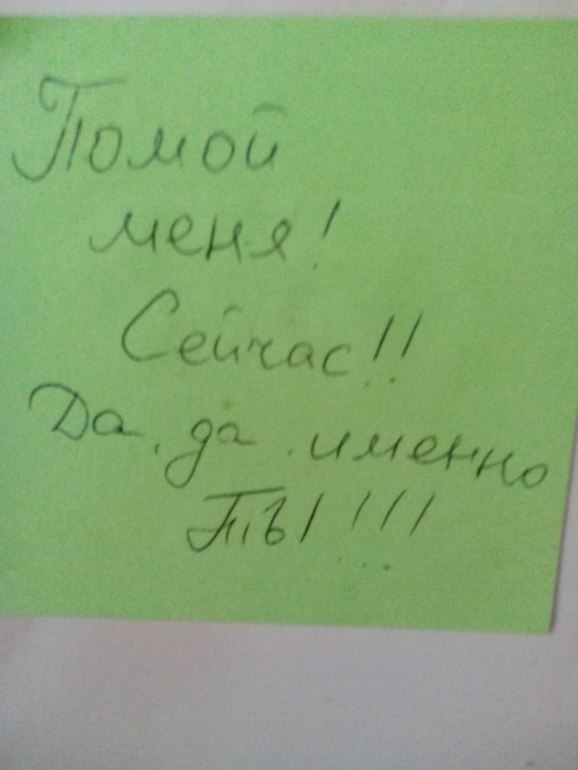 Помой
меня!
Сейчас!!
Да, да, именно
ТЫ!!!